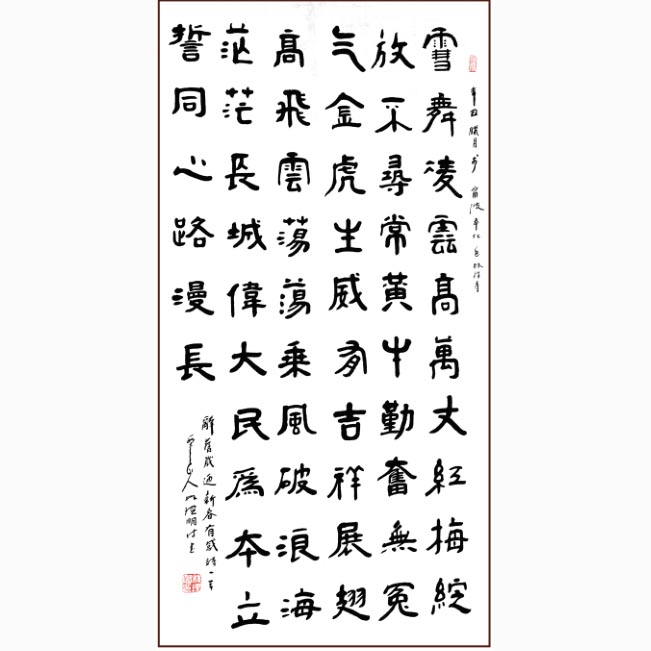 雪舞凌雲高萬丈紅梅綻
放采尋常黃牛勤奮無冤
气金虎生威有吉祥展翅
高飛雲蕩蕩乘風破浪海
茫茫長城偉大民爲本立
誓同心路漫長
辭舊歲迎新春有感詩一首
辛丑臘月書